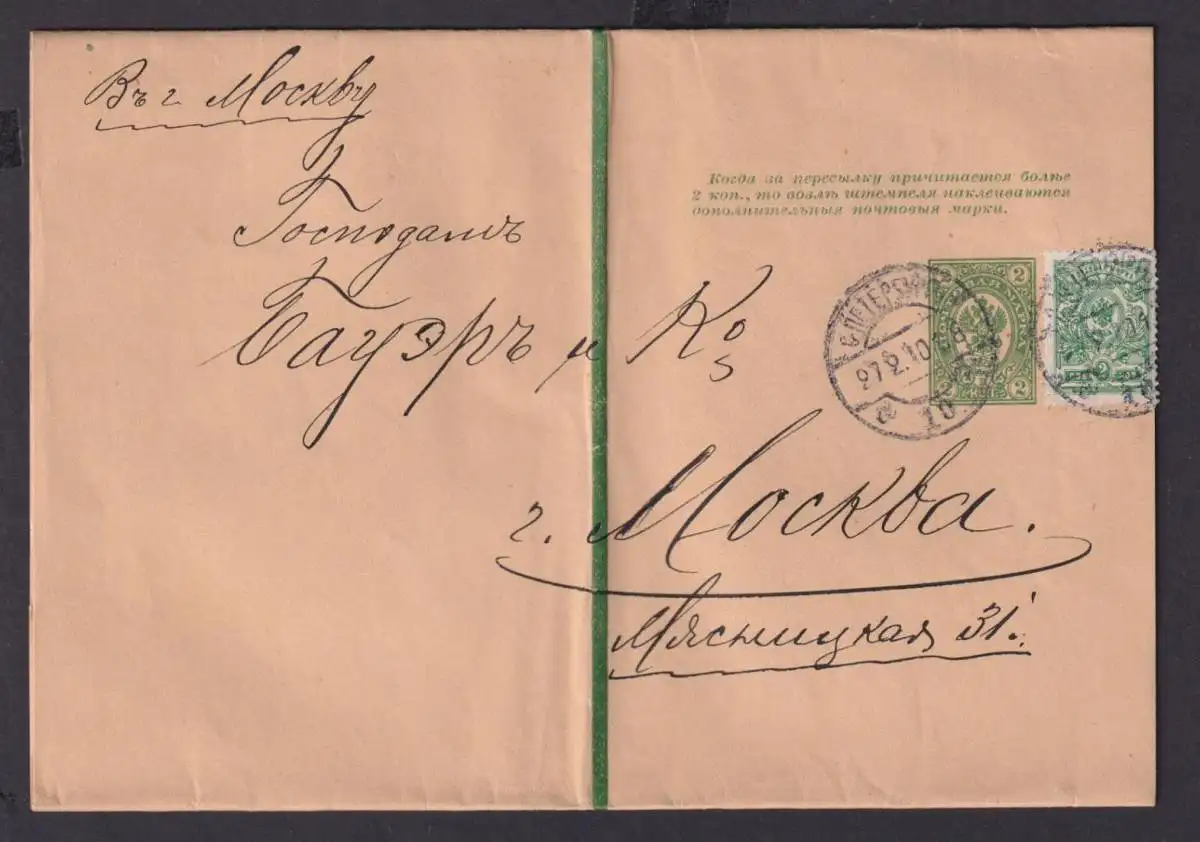 Въ г. Москву
Господамъ
Бауэръ и Ко
г. Москва.
Мясницкая 31.
Когда за пересылку причитается болѣе
2 коп., то возлѣ штемпеля наклеиваются
дополнительныя почтовыя марки.
2 2
2 2
С.ПЕТЕРБУРГЪ
27.2.10
10